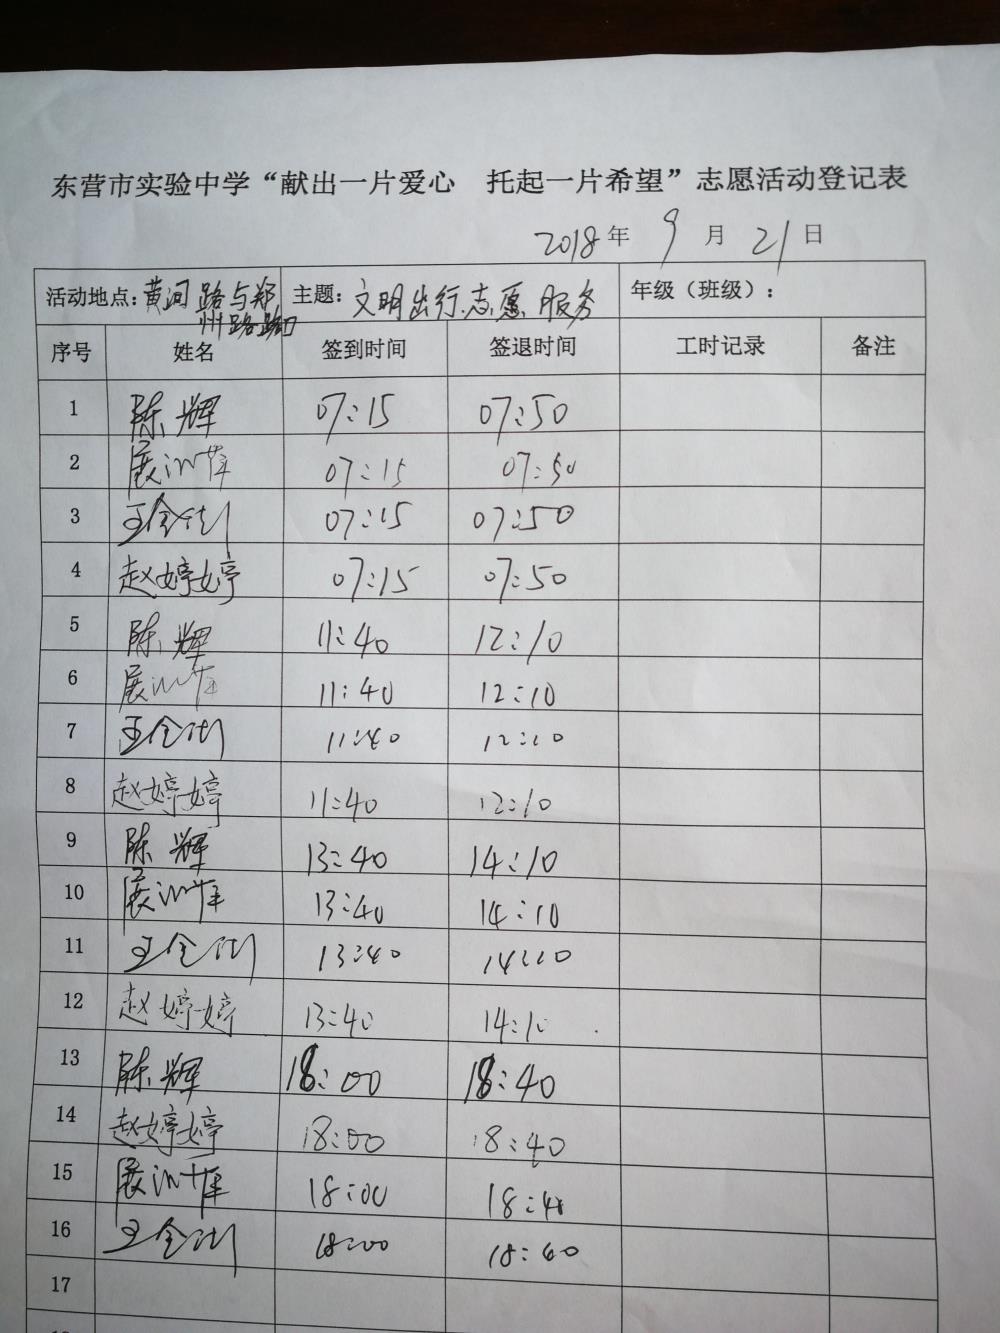 东营市实验中学“献出一片爱心 托起一片希望”志愿活动登记表
2018年 9月 21日
活动地点：黄河路与郑州路路口 主题：文明出行志愿服务 年级（班级）：
序号 姓名 签到时间 签退时间 工时记录 备注
1 陈辉 07:15 07:50
2 展 07:15 07:50
3 王 07:15 07:50
4 赵婷婷 07:15 07:50
5 陈辉 11:40 12:10
6 展 11:40 12:10
7 王 11:40 12:10
8 赵婷婷 11:40 12:10
9 陈辉 13:40 14:10
10 展 13:40 14:10
11 王 13:40 14:10
12 赵婷婷 13:40 14:10
13 陈辉 18:00 18:40
14 赵婷婷 18:00 18:40
15 展 18:00 18:40
16 王 18:00 18:40
17